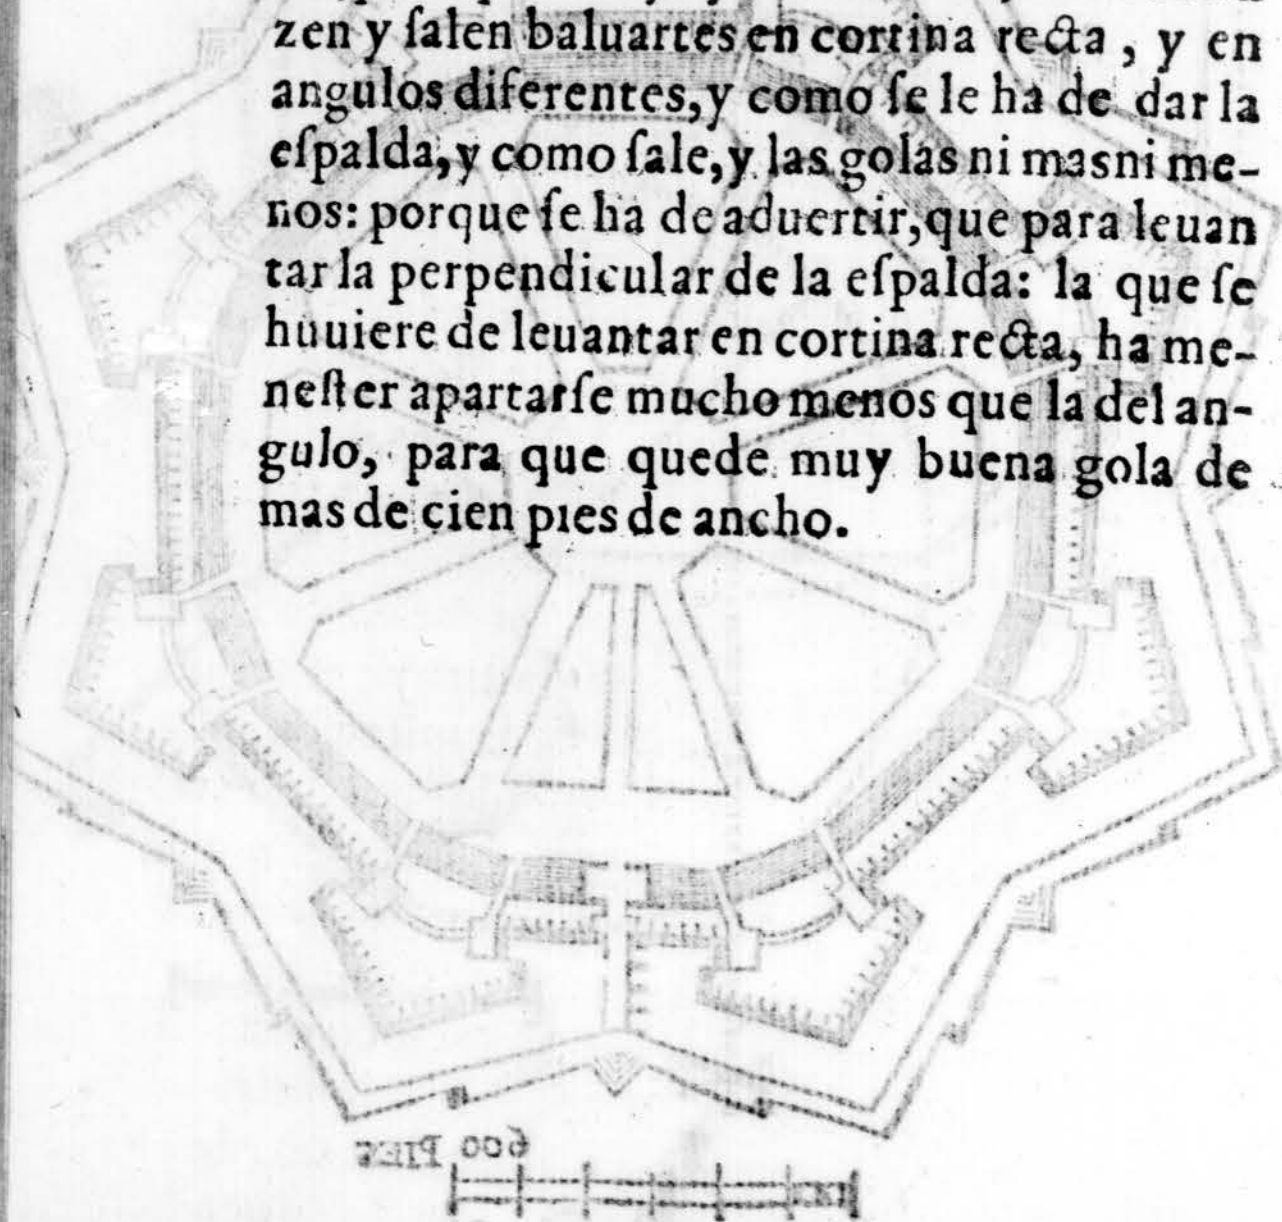 zen y ſalen baluartes en cortina recta, y en
angulos diferentes, y como ſe le ha de dar la
eſpalda, y como ſale, y las golas ni mas ni me-
nos: porque ſe ha de aduertir, que para leuan
tar la perpendicular de la eſpalda: la que ſe
huuiere de leuantar en cortina recta, ha me-
neſter apartarſe mucho menos que la del an-
gulo, para que quede muy buena gola de
mas de cien pies de ancho.
600 PIES